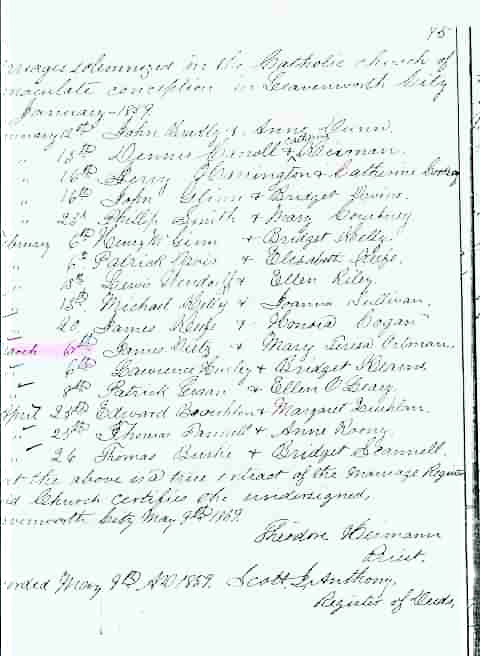 95
rriages solemnized in the Catholic church of
maculate conception in Leavenworth City
January - 1859.
nuary 12th John Bradly & Anne Dunn.
" 13th Dennis Carroll & Catherine
" 16th Jerry Harrington & Catherine
" 16th John Glinn & Bridget Devine.
" 23d Phillip Smith & Mary Courtney
ebruary 6th Henry W. Ginn & Bridget Kelly.
" 6th Patrick & Elisabeth
" 13th Lewis & Ellen Riley.
" 13th Michael & Joanna Sullivan.
" 20 James Keefe & Honora Hogan
arch 6th James & Mary Teresa
" 6th Lawrence Hurley & Bridget
" 8th Patrick & Ellen O'Leary.
April 25th Edward & Margaret
" 25th Thomas & Anne
" 26 Thomas Burke & Bridget Scannell.
at the above is a true extract of the Marriage Regis
id Church certifies the undersigned,
avenworth City May 9th 1859.
Theodore Heimann
Priest.
orded May 9th AD 1859. Scott J. Anthony,
Register of Deeds,